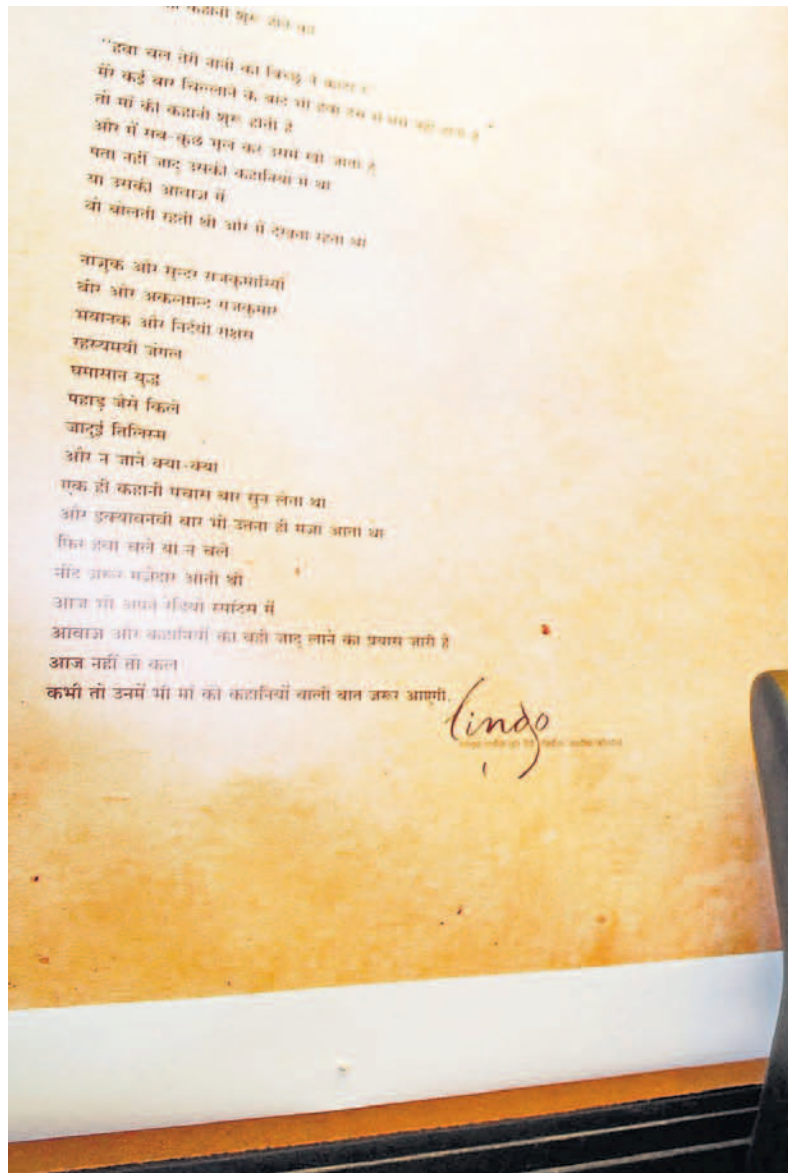 कहानी शुरू होने का
"हवा चल तेरी नानी को बिच्छू ने काटा है"
मेरे कई बार चिल्लाने के बाद भी हवा टस से मस नहीं होती है
तो माँ की कहानी शुरू होती है
और मैं सब-कुछ भूल कर उसमें खो जाता हूँ
पता नहीं जादू उसकी कहानियों में था
या उसकी आवाज़ में
वो बोलती रहती थी और मैं देखता रहता था
नाज़ुक और सुन्दर राजकुमारियाँ
वीर और अकलमन्द राजकुमार
भयानक और निर्दयी राक्षस
रहस्यमयी जंगल
घमासान युद्ध
पहाड़ जैसे किले
जादुई तिलिस्म
और न जाने क्या-क्या
एक ही कहानी पचास बार सुन लेता था
और इक्यावनवीं बार भी उतना ही मज़ा आता था
फिर हवा चले या न चले
नींद ज़रूर मज़ेदार आती थी
आज भी अपने रेडियो स्पॉट्स में
आवाज़ और कहानियों का वही जादू लाने का प्रयास जारी है
आज नहीं तो कल
कभी तो उनमें भी माँ की कहानियों वाली बात ज़रूर आएगी.
lingo